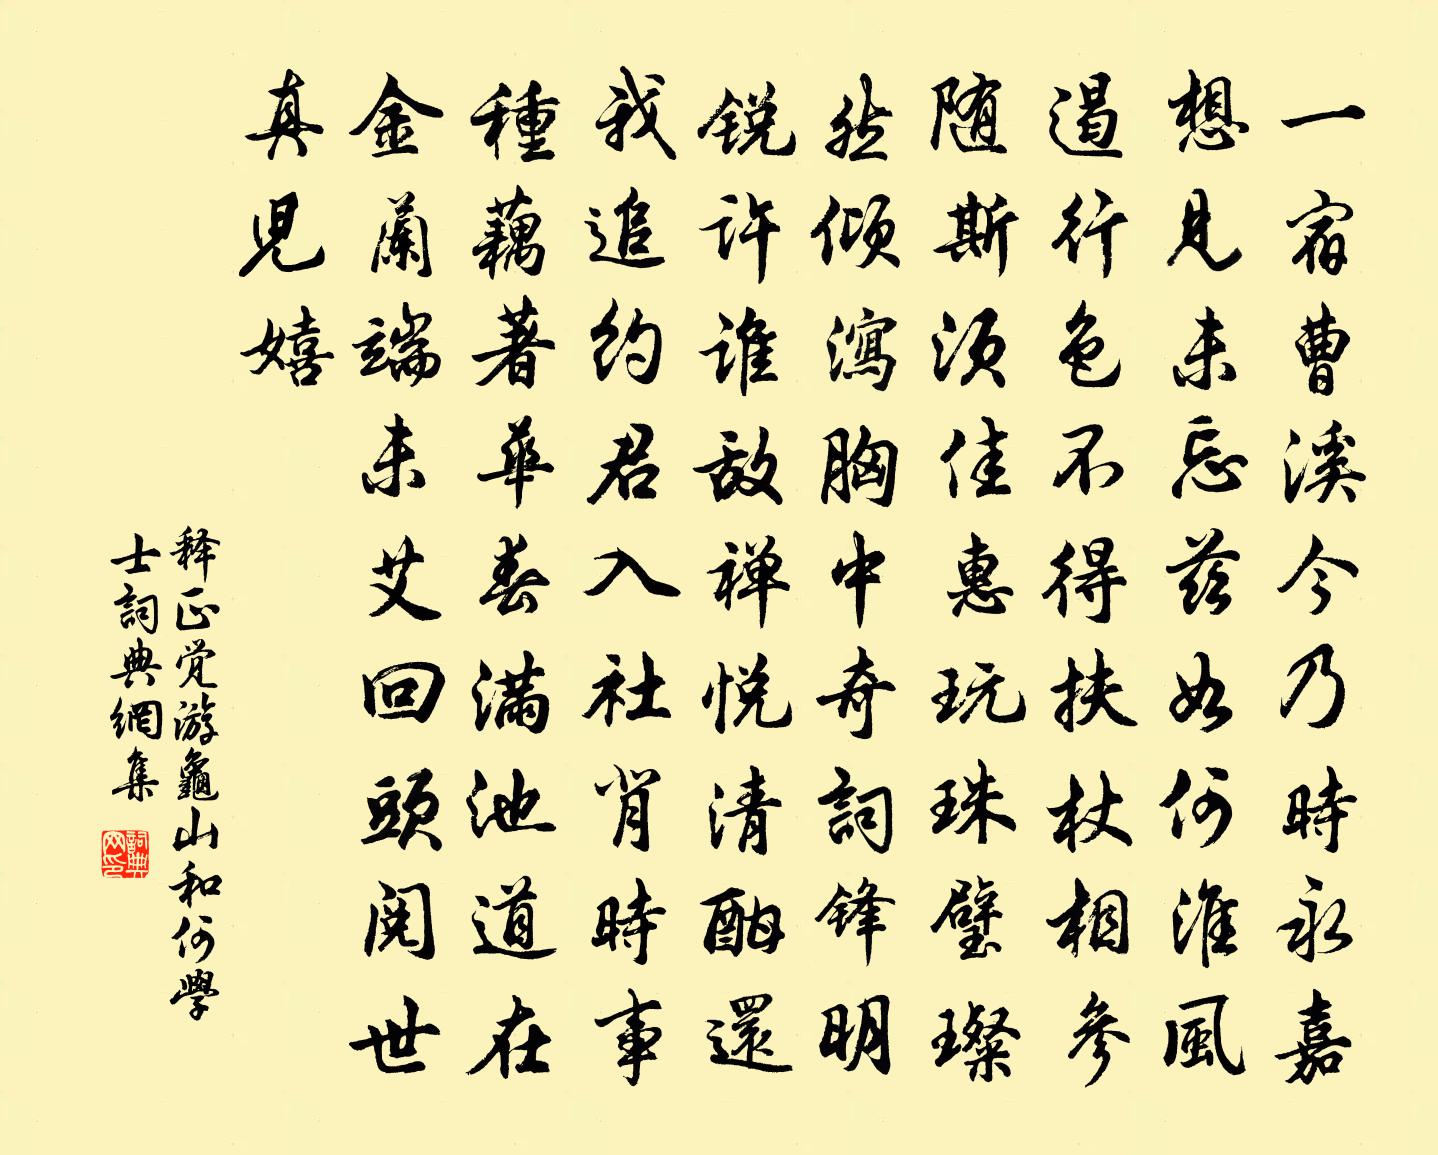 一宿曹溪今乃時永嘉
想見未忘茲如何淮風
遏行色不得扶杖相參
随斯須佳惠玩珠璧璨
然傾瀉胸中奇詞鋒明
銳許誰敵禅悅清酣還
我追約君入社肯時事
種藕著華春滿池道在
金蘭端未艾回頭閱世
真児嬉
释正覚游龜山和何學
士詞典網集
詞典網印